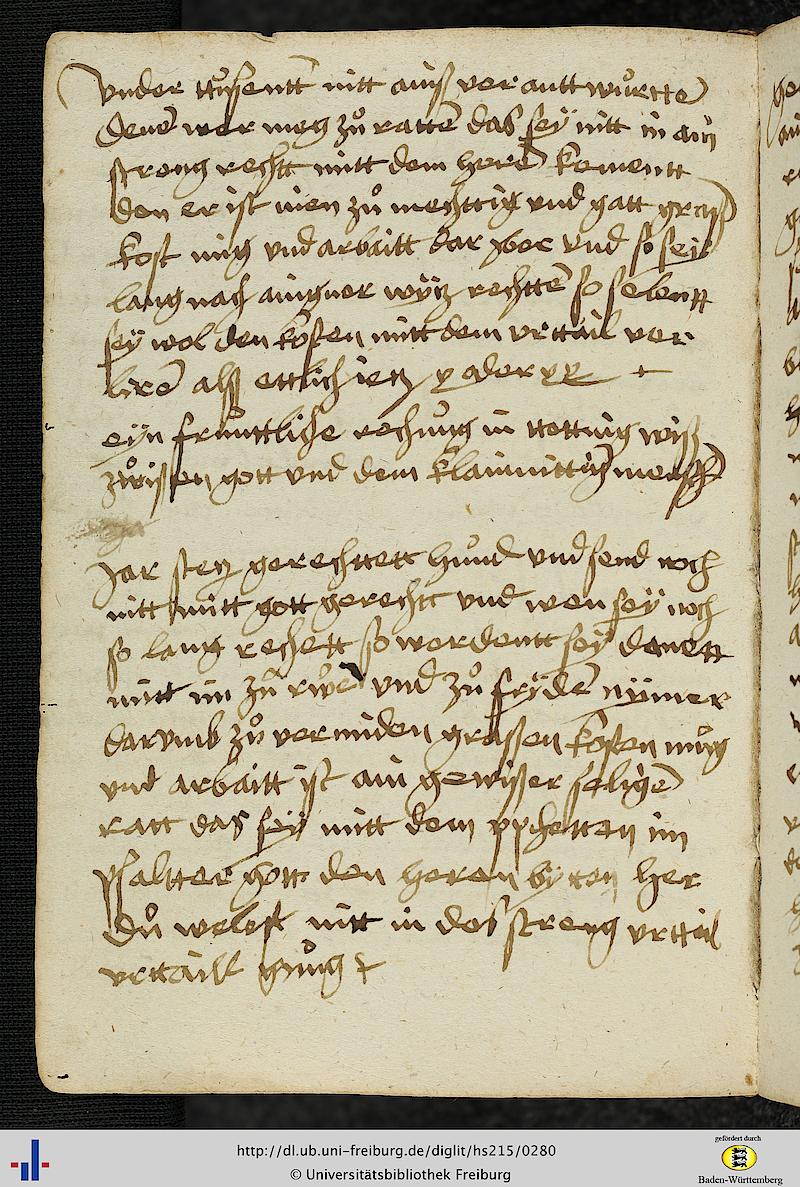 vnder ttusentt nitt ainß verantt wůrtte
denē wer meg zů rattē das sey nitt in ain
streng rechtt mitt dem herē komentt
den er ist inen zů mechttig vnd gatt groß
kost mig vnd arbaitt dar yber vnd so sey
lang nach aingner wytz rechttē so selentt
sey wol den kosten mitt dem vrttail ver
lirē alß ettlich ietz y oder
eyn fruntliche rechůng in
zů wissen gott vnd dem klainmittigē mensch
Jar stetz gerechttett hund vnd send noch
nitt mitt gott gerechtt vnd wen sey noch
so lang rechett so werdentt sey denett
mitt im zů růe vnd zů frydē nymer
darumb zů vermiden grossen kosten můg
vnd arbaitt ist ain gewisser seligē
ratt das sey mitt dem pphetten im
psaltter gott den heren bytten her
dů welest nitt in das streng vrttail
vrttaill gyng
http://dl.ub.uni-freiburg.de/diglit/hs215/0280
© Universitätsbibliothek Freiburg
gefördert durch
Baden-Württemberg